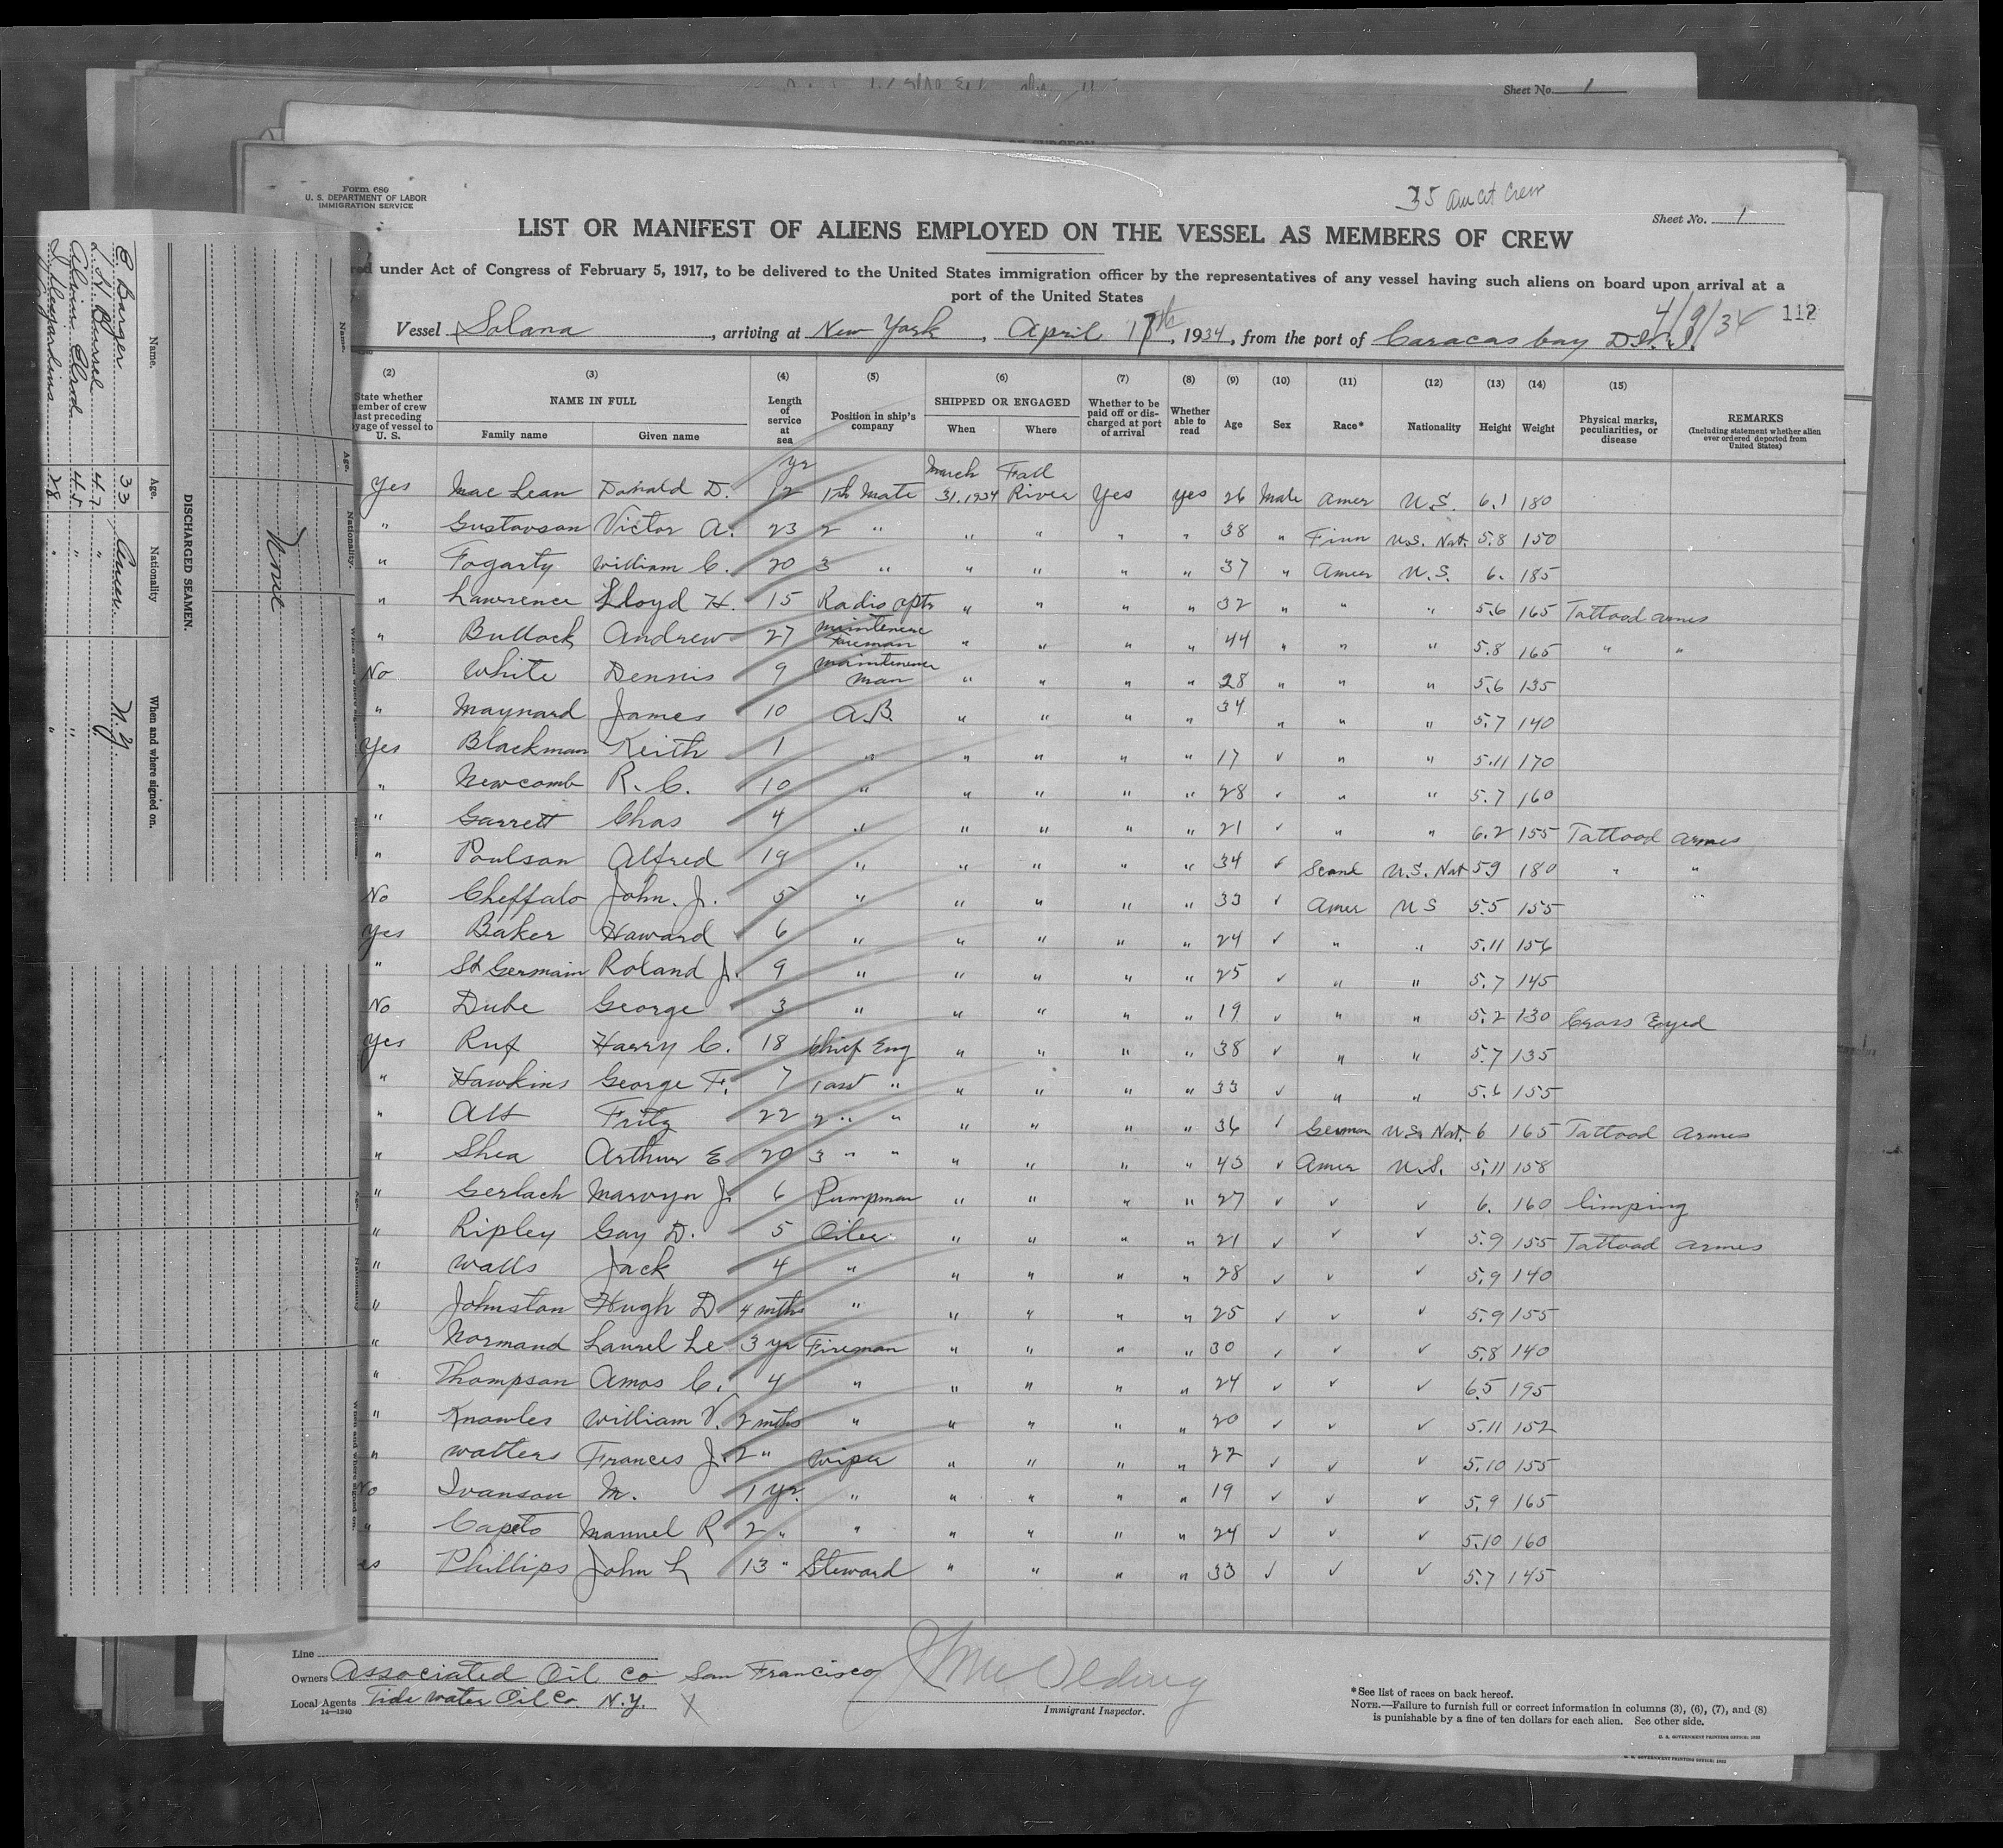 Sheet No. 1
Form 680
U. S. DEPARTMENT OF LABOR
IMMIGRATION SERVICE
35 Am Cit Crew
Sheet No. 1
LIST OR MANIFEST OF ALIENS EMPLOYED ON THE VESSEL AS MEMBERS OF CREW
under Act of Congress of February 5, 1917, to be delivered to the United States immigration officer by the representatives of any vessel having such aliens on board upon arrival at a
port of the United States
4/9/34 112
Vessel Solana, arriving at New York, April 17th, 1934, from the port of Caracas bay D.W.I.
(2) (3) (4) (5) (6) (7) (8) (9) (10) (11) (12) (13) (14) (15)
State whether member of crew last preceding voyage of vessel to U. S. NAME IN FULL Family name Given name Length of service at sea Position in ship's company SHIPPED OR ENGAGED When Where Whether to be paid off or discharged at port of arrival Whether able to read Age Sex Race* Nationality Height Weight Physical marks, peculiarities, or disease REMARKS (Including statement whether alien ever ordered deported from United States)
Yes Mac Lean Donald D. 12 yr 1st Mate March 31.1934 Fall River Yes yes 26 Male Amer U.S. 6.1 180
" Gustavson Victor A. 23 2 " " " " " 38 " Finn U.S. Nat. 5.8 150
" Fogarty William C. 20 3 " " " " " 37 " Amer U.S. 6. 185
" Lawrence Lloyd H. 15 Radio optr " " " " 32 " " " 5.6 165 Tattood armes
" Bullock Andrew 27 maintenence foreman " " " " 44 " " " 5.8 165 " "
No White Dennis 9 maintenence man " " " " 28 " " " 5.6 135
" Maynard James 10 A.B. " " " " 34 " " " 5.7 140
Yes Blackman Keith 1 " " " " " 17 ✓ " " 5.11 170
" Newcomb R. C. 10 " " " " " 28 ✓ " " 5.7 160
" Garrett Chas 4 " " " " " 21 ✓ " " 6.2 155 Tattood armes
" Poulson Alfred 19 " " " " " 34 ✓ Scand U.S. Nat 5.9 180 " "
No Cheffalo John. J. 5 " " " " " 33 ✓ Amer U S 5.5 155
Yes Baker Howard 6 " " " " " 24 ✓ " " 5.11 156
" St Germain Roland J. 9 " " " " " 25 ✓ " " 5.7 145
No Dube George 3 " " " " " 19 ✓ " " 5.2 130 Cross Eyed
Yes Ruf Harry C. 18 Chief Eng " " " " 38 ✓ " " 5.7 135
" Hawkins George F. 7 1 ast " " " " " 33 ✓ " " 5.6 155
" Alt Fritz 22 2 " " " " " " 36 ✓ German U.S. Nat. 6 165 Tattood Armes
" Shea Arthur E 20 3 " " " " " " 43 ✓ Amer U.S. 5.11 158
" Gerlach Marvyn J. 6 Pumpman " " " " 27 ✓ ✓ ✓ 6. 160 limping
" Ripley Gay D. 5 Oiler " " " " 21 ✓ ✓ ✓ 5.9 155 Tattood armes
" Walls Jack 4 " " " " " 28 ✓ ✓ ✓ 5.9 140
" Johnston Hugh D 4 mths " " " " " 25 ✓ ✓ ✓ 5.9 155
" Normand Laurel Le 3 yr Fireman " " " " 30 ✓ ✓ ✓ 5.8 140
" Thompson Amos C. 4 " " " " " 24 ✓ ✓ ✓ 6.5 195
" Knowles William V. 2 mths " " " " " 20 ✓ ✓ ✓ 5.11 152
" Watters Frances J. 2 " Wiper " " " " 22 ✓ ✓ ✓ 5.10 155
No Ivanson M. 1 yr. " " " " " 19 ✓ ✓ ✓ 5.9 165
" Capeto Manuel R 2 " " " " " " 24 ✓ ✓ ✓ 5.10 160
es Phillips John L 13 " Steward " " " " 33 ✓ ✓ ✓ 5.7 145
Line
Owners Associated Oil Co San Francisco
Local Agents Tide Water Oil Co. N.Y. X
14—1240
Immigrant Inspector.
*See list of races on back hereof.
NOTE.—Failure to furnish full or correct information in columns (3), (6), (7), and (8)
is punishable by a fine of ten dollars for each alien. See other side.
U. S. GOVERNMENT PRINTING OFFICE: 1933
U. S. GOVERNMENT PRINTING OFFICE: 1933
DISCHARGED SEAMEN.
Name. Age. Nationality When and where signed on.
E Barger 33 Amer. N.Y.
47 "
45 " "
28 " "
Name. Age. Nationality.
None